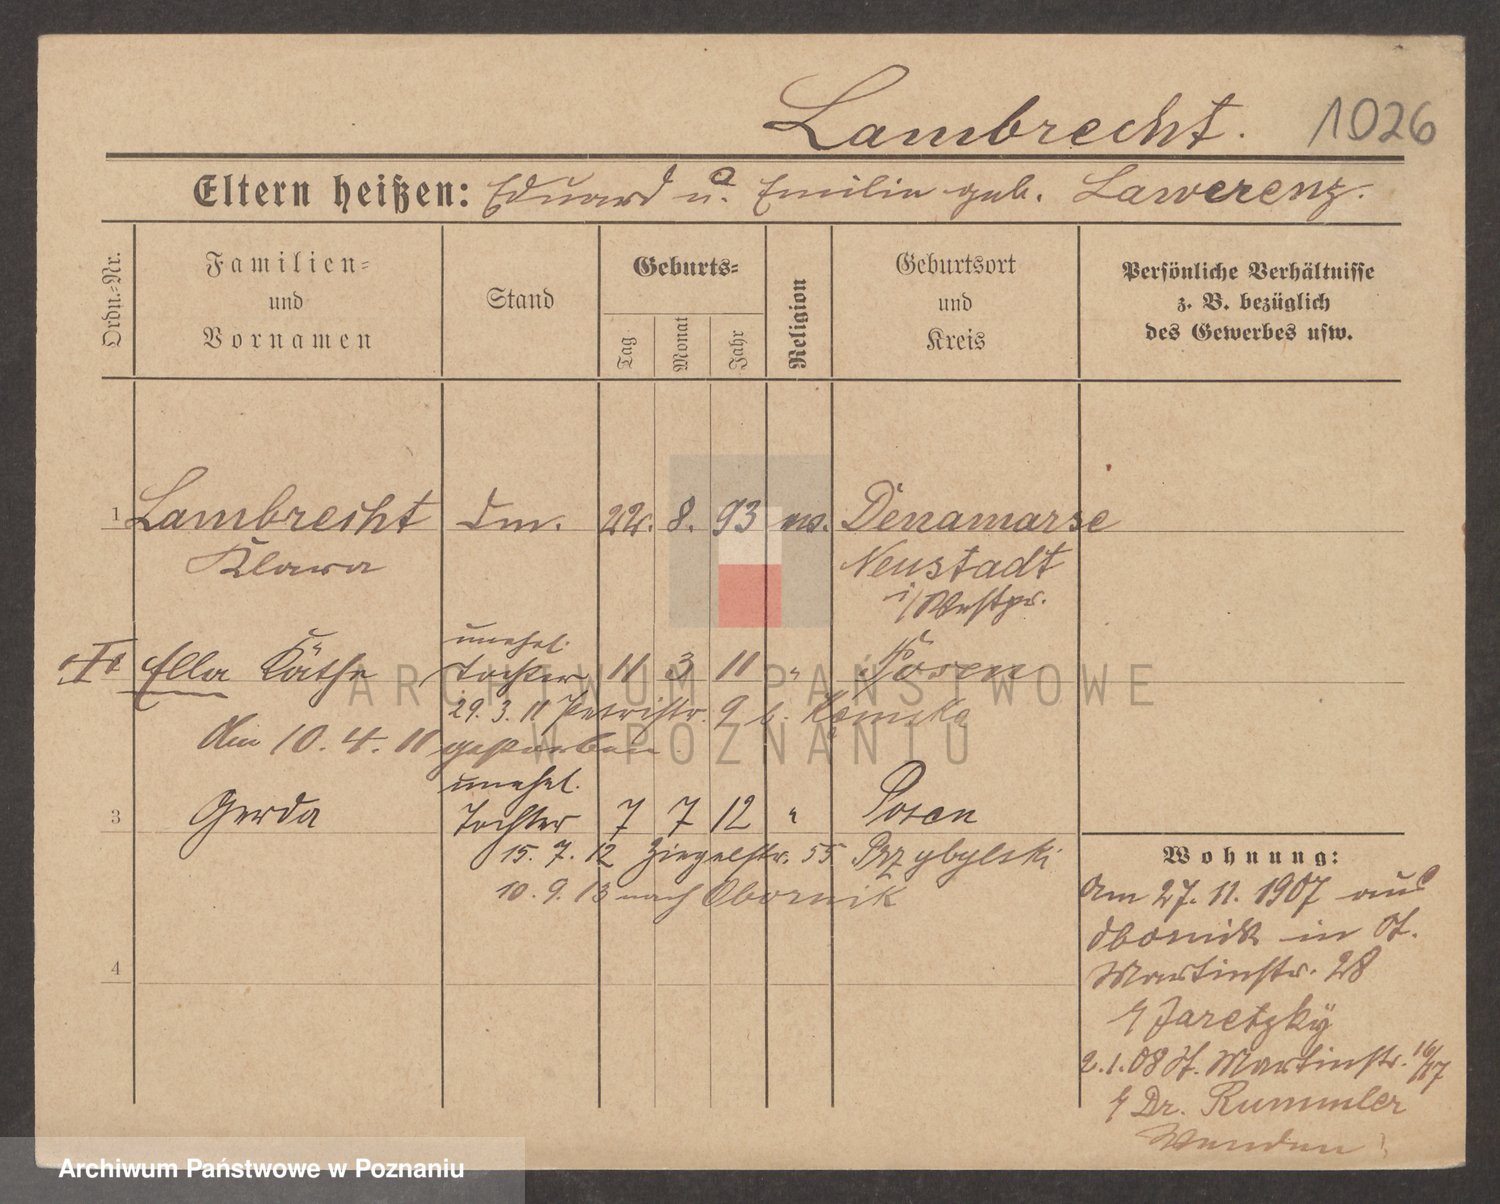 Lambrecht. 1026
Eltern heißen: Eduard u. Emilie geb. Lawerenz.
Ordn.-Nr.
Familien-
und
Vornamen
Stand
Geburts-
Tag
Monat
Jahr
Religion
Geburtsort
und
Kreis
Persönliche Verhältnisse
z. B. bezüglich
des Gewerbes usw.
1 Lambrecht 22. 8. 93 Denamarse
Klara Neustadt
i/Westpr.
unehel.
Ella Käthe Tochter 11 3 11 " Posen
29. 3. 11 Petristr. 9 b.
Am 10. 4. 11 gestorben
unehel.
3 Gerda Tochter 7 7 12 " Posen
15. 7. 12 Ziegelstr. 55 Przybylski
10. 9. 13 nach Obornik
4
Wohnung:
Am 27. 11. 1907 aus
Obornik in St.
Martinstr. 28
Jaretzky
2.1.08 St. Martinstr. 16/17
Dr. Rummler
ARCHIWUM PAŃSTWOWE
W POZNANIU
Archiwum Państwowe w Poznaniu